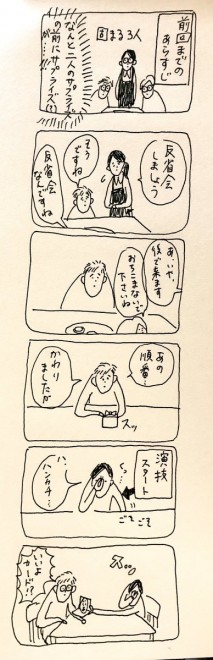 前回までの
あらすじ
固まる3人
なんと二人のサプライズ
の前にサプライズ(!)
が…!!
反省会
しましょう
そう
ですね
反省会
なんですね
あ、いや、
後で来ます
おちこまないで
下さいね
あの
順番…
かわり
ましたが
スッ
演技
スタート
う…
ハ、
ハンカチ…
ごそごそ
いいよ
カード!?